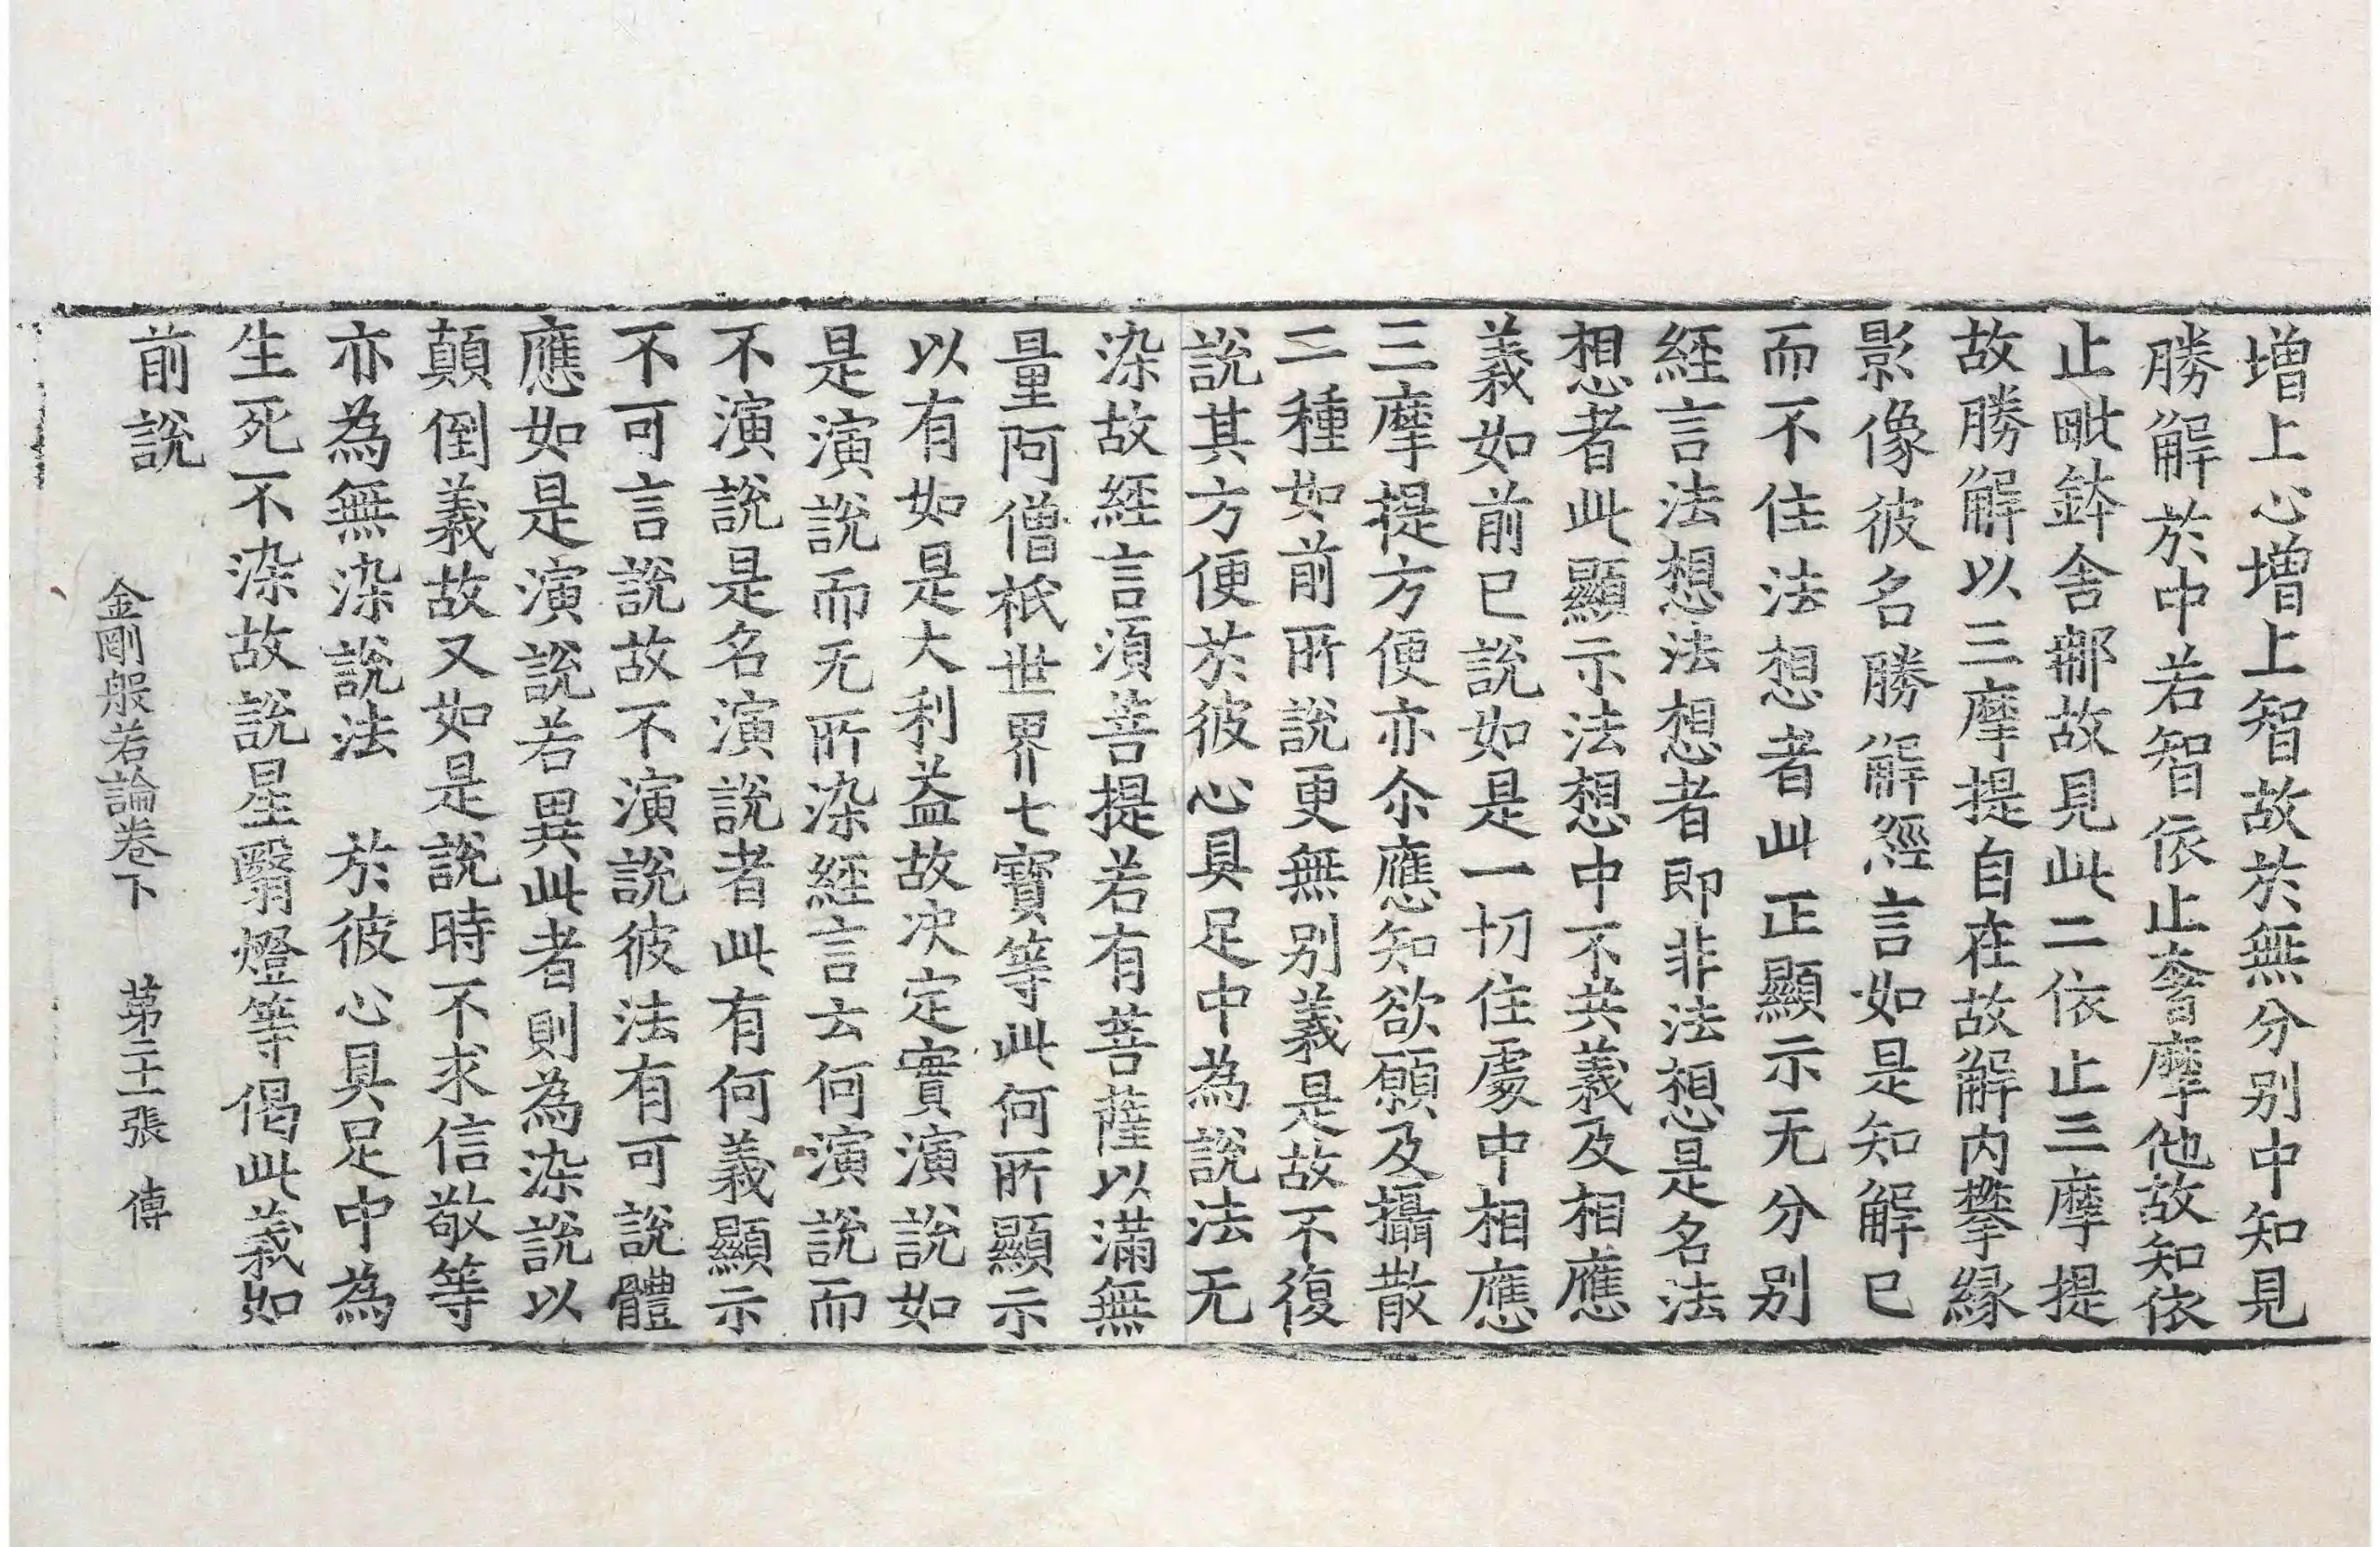 增上心增上智故於無分别中知見
勝解於中若智依止奢摩他故知依
止毗鉢舍那故見此二依止三摩提
故勝解以三摩提自在故解内攀緣
影像彼名勝解經言如是知解已
而不住法想者此正顯示无分别
經言法想法想者即非法想是名法
想者此顯示法想中不共義及相應
義如前已説如是一切住處中相應
三摩提方便亦尒應知欲願及攝散
二種如前所説更無别義是故不復
説其方便於彼心具足中為説法无
染故經言須菩提若有菩薩以滿無
量阿僧祇世界七寶等此何所顯示
以有如是大利益故决定實演説如
是演説而无所染經言云何演説而
不演説是名演説者此有何義顯示
不可言説故不演説彼法有可説體
應如是演説若異此者則為染説以
顛倒義故又如是説時不求信敬等
亦為無染説法　於彼心具足中為
生死不染故説星翳燈等偈此義如
前説
金剛般若論卷下　第二十一張　傅